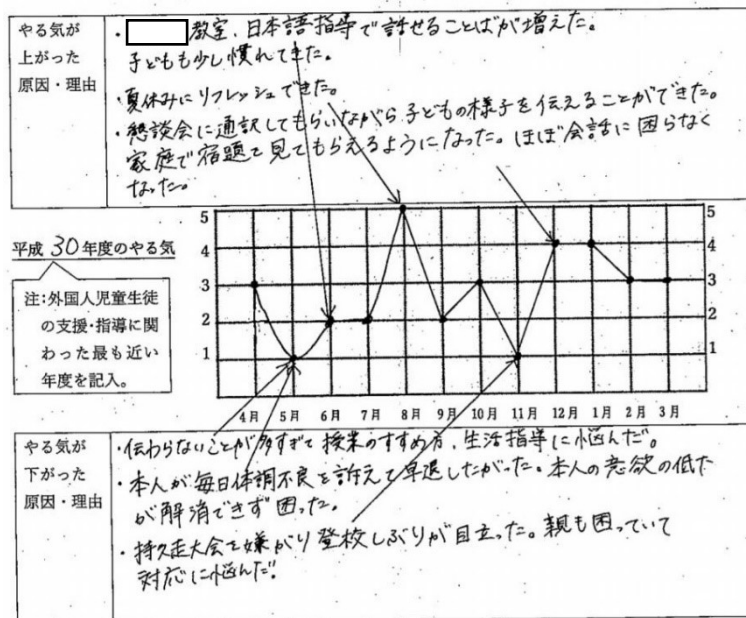 やる気が
上がった
原因・理由
・教室、日本語指導で話せることばが増えた。
子どもも少し慣れてきた。
・夏休みにリフレッシュできた。
・懇談会に通訳してもらいながら子どもの様子を伝えることができた。
家庭で宿題を見てもらえるようになった。ほぼ会話に困らなく
なった。
平成30年度のやる気
注:外国人児童生徒
の支援・指導に関
わった最も近い
年度を記入。
5
4
3
2
1
5
4
3
2
1
4月 5月 6月 7月 8月 9月 10月 11月 12月 1月 2月 3月
やる気が
下がった
原因・理由
・伝わらないことが多すぎて授業のすすめ方、生活指導に悩んだ。
・本人が毎日体調不良を訴えて早退したがった。本人の意欲の低下
が解消できず困った。
・持久走大会を嫌がり登校しぶりが目立った。親も困っていて
対応に悩んだ。